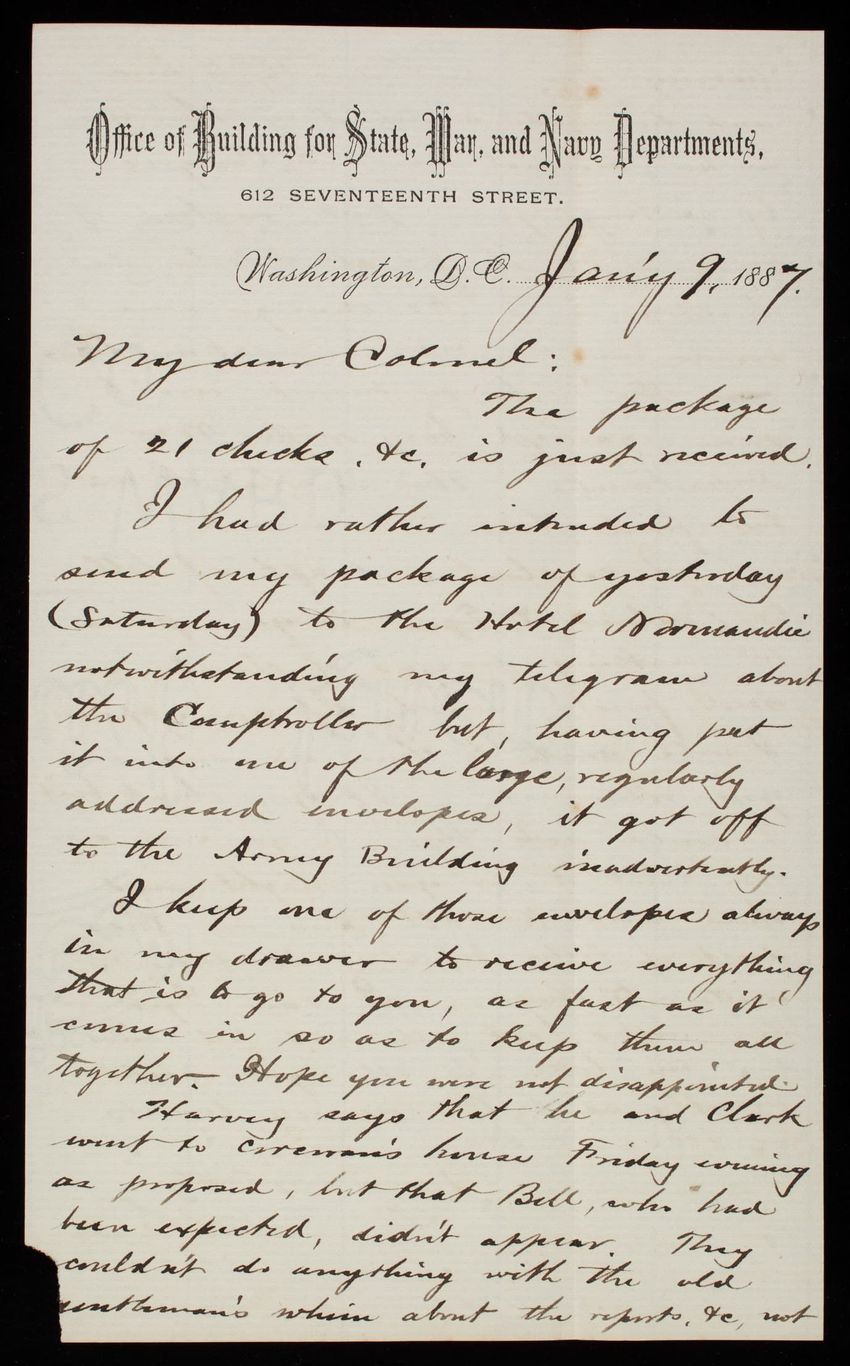 Office of Building for State, War, and Navy Departments,
612 SEVENTEENTH STREET.
Washington, D.C. Jan'y 9, 1887.
My dear Colonel:
The package
of 21 checks, &c. is just received.
I had rather intended to
send my package of yesterday
(Saturday) to the Hotel Normandie
notwithstanding my telegram about
the Comptroller but, having put
it into one of the large, regularly
addressed envelopes, it got off
to the Army Building inadvertently.
I keep one of those envelopes always
in my drawer to receive everything
that is to go to you, as fast as it
comes in so as to keep them all
together. Hope you were not disappointed.
Harvey says that he and Clark
went to Corcoran's house Friday evening
as proposed, but that Bell, who had
been expected, didn't appear. They
couldn't do anything with the old
gentleman's whim about the reports, &c, not